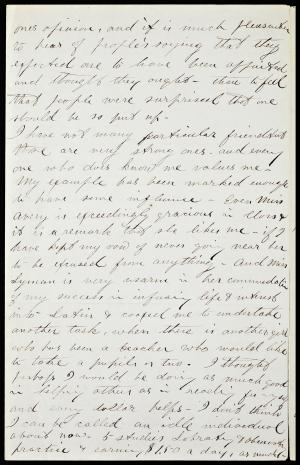 one's opinion, and it is much pleasanter
to hear of people's saying that they
expected one to have been appointed
and thought they ought - than to feel
that people were surprised that one
should be so put up -
I have not many particular friends but
those are very strong ones and every
one who does know me values me -
My example has been marked enough
to have some influence - Even Miss
Avery is exceedingly gracious in class &
it is a remark that she likes me - if I
have kept my vow of never going near her
to be excused from anything - And Miss
Lyman is very warm in her commendation
of my success in infusing life & interest
into Latin & coaxed me to undertake
another task, when there is another girl
who has been a teacher who would like
to take a pupil or two - I thought
perhaps I would be doing as much good
in helping others as in
and every dollar helps - I don't think
I can be called an idle individual
about now - 5 studies Laboratory &
practice & earning $1.50 a day, as much